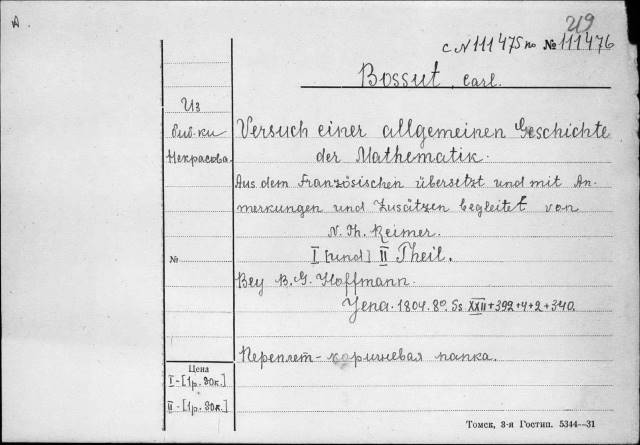 A
219
с N 111475 по № 111476
Bossut, Carl.
Из
биб-ки
Некрасова.
Versuch einer allgemeinen Geschichte
der Mathematik.
Aus dem Französischen übersetzt und mit An-
merkungen und Zusätzen begleitet von
N. Th. Reimer.
I [und] II Theil.
№
Bey B. G. Hoffmann.
Jena. 1804. 8º. Ss XXII+392+4+2+340.
Переплет - коричневая папка.
Цена
I - [1р. 30к.]
II - [1р. 30к.]
Томск, 3-я Гостип. 5344—31